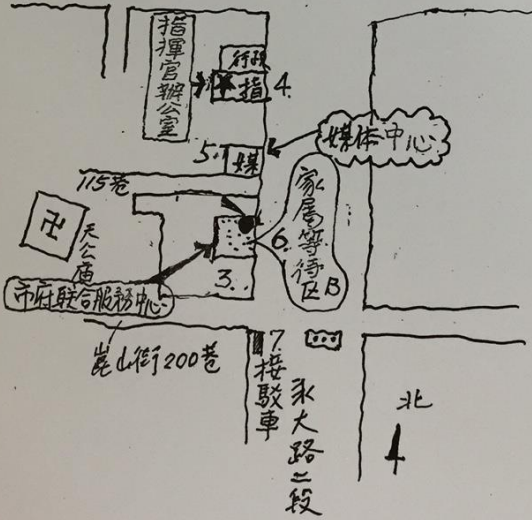 指揮官辦公室
行政
指
4.
5.
媒
媒体中心
115巷
卍
天公庙
家属等待区B
6.
3.
市府联合服務中心
崑山街200巷
7.
接駁車
永大路二段
北